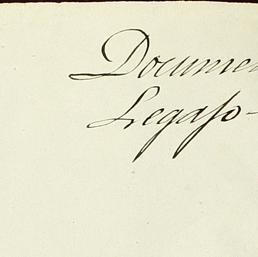 Documen
Legajo-